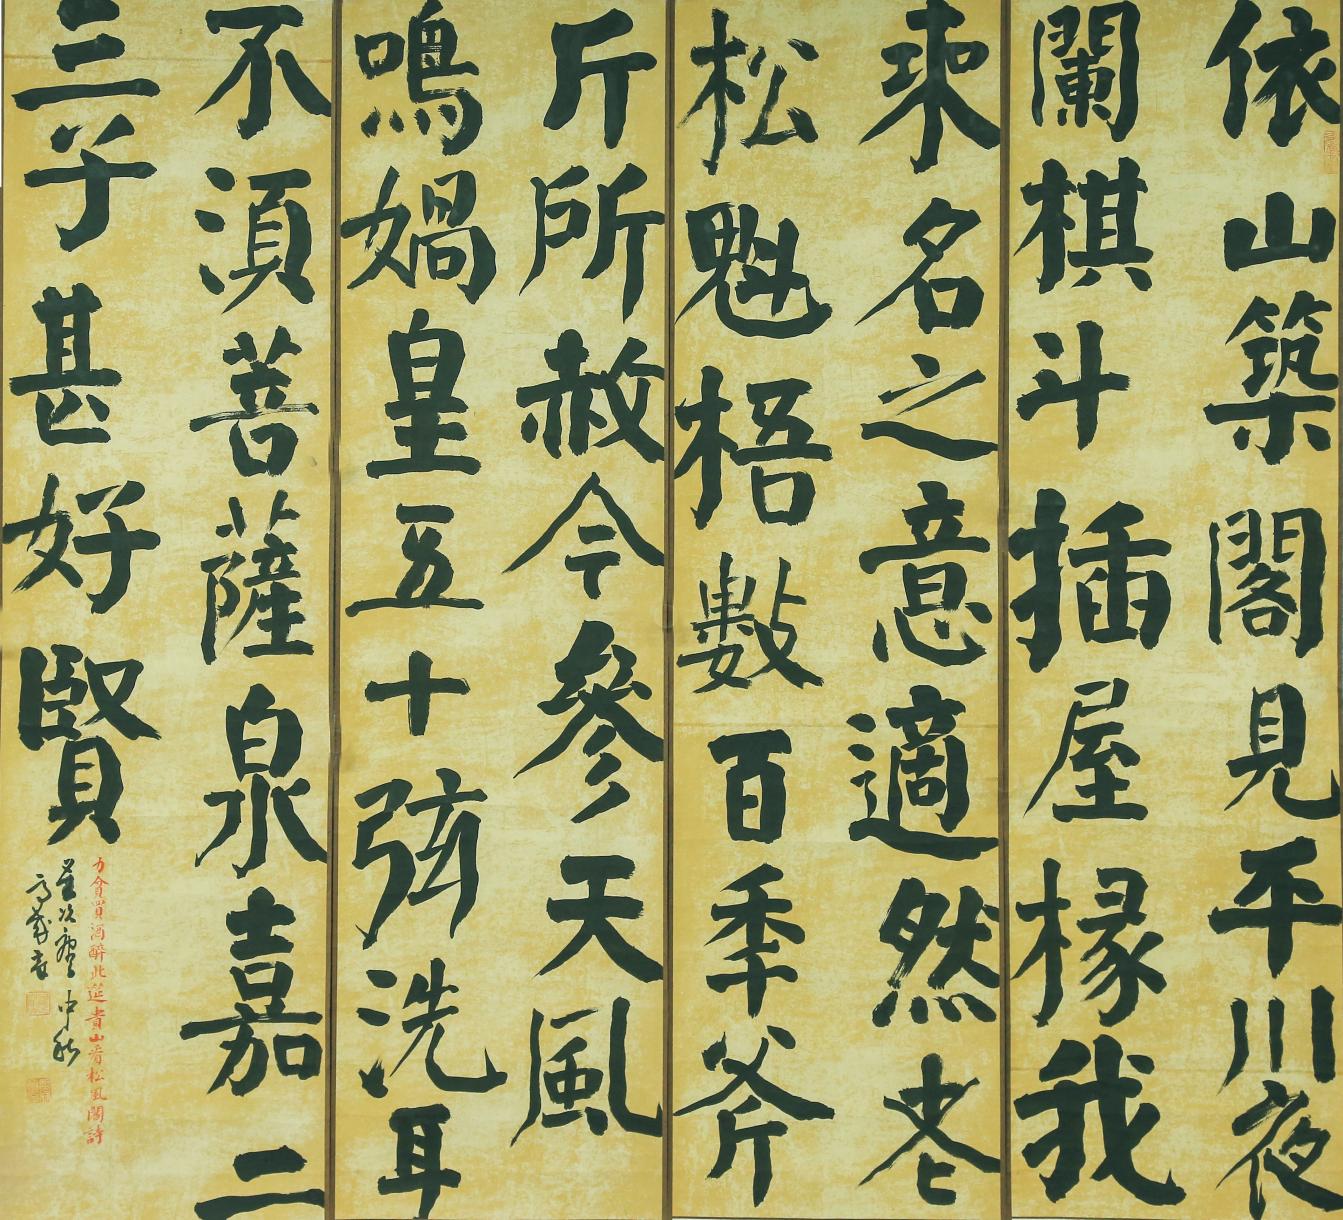 依山築閣見平川夜
闌棋斗插屋椽我
來名之意適然老
松魁梧數百季斧
斤所赦今參天風
鳴媧皇五十弦洗耳
不須菩薩泉嘉二
三子甚好賢
力貧買酒醉此筵書山谷松風閣詩
中秋